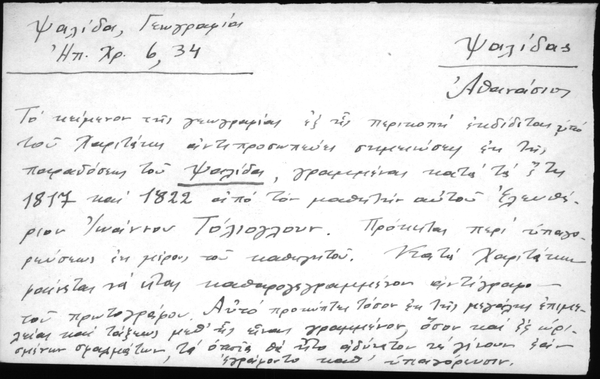 Ψαλίδα, Γεωγραφία
Ἠπ. Χρ. 6, 34
Ψαλίδας
Ἀθανάσιος
Τὸ κείμενον τῆς γεωγραφίας ἐξ ἧς περικοπὴ ἐκδίδεται ὑπὸ
τοῦ Χαριτάκη ἀντιπροσωπεύει σημειώσεις ἐκ τῆς
παραδόσεως τοῦ Ψαλίδα, γραμμένας κατὰ τὰ ἔτη
1817 καὶ 1822 ἀπὸ τὸν μαθητὴν αὐτοῦ Ἐλευθέ-
ριον Ἰωάννου Τόλιογλουν. Πρόκειται περὶ ὑπαγο-
ρεύσεως ἐκ μέρους τοῦ καθηγητοῦ. Κατὰ Χαριτάκην
φαίνεται νὰ εἶναι καθαρογεγραμμένον ἀντίγραφο
τοῦ πρωτογράφου. Αὐτὸ προκύπτει τόσον ἐκ τῆς μεγάλης ἐπιμε-
λείας καὶ τάξεως μεθ' ἧς εἶναι γραμμένον, ὅσον καὶ ἐξ ὡρι-
σμένων σφαλμάτων, τὰ ὁποῖα θὰ ἦτο ἀδύνατον νὰ γίνουν ἐὰν
ἐγράφοντο καθ' ὑπαγόρευσιν.